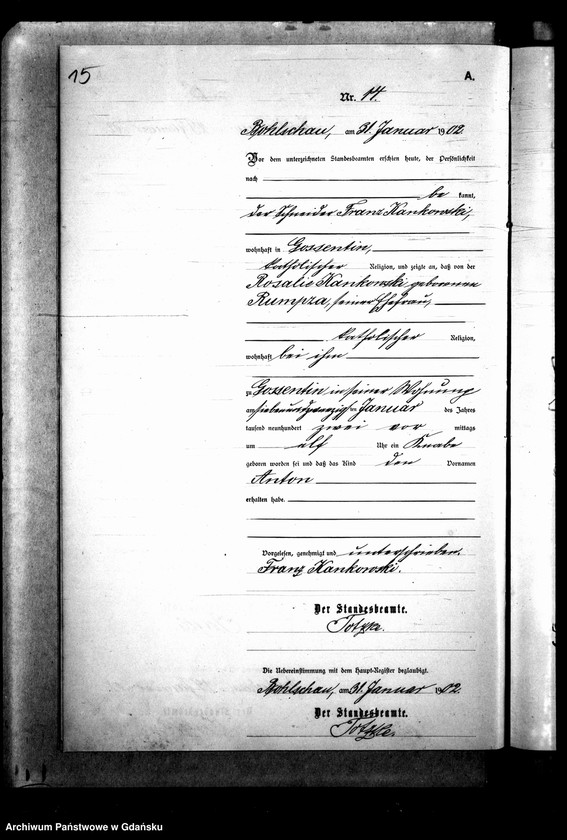 15
A.
Nr. 14.
Bohlschau, am 31. Januar 1902.
Vor dem unterzeichneten Standesbeamten erschien heute, der Persönlichkeit
nach
be kannt,
der Schneider Franz Kankowski,
wohnhaft in Gossentin,
katholischer Religion, und zeigte an, daß von der
Rosalie Kankowski geborenen
Rumpza, seiner Ehefrau,
katholischer Religion,
wohnhaft bei ihm
zu Gossentin in seiner Wohnung
am siebenundzwanzigsten Januar des Jahres
tausend neunhundert zwei vor mittags
um elf Uhr ein Knabe
geboren worden sei und daß das Kind den Vornamen
Anton
erhalten habe.
Vorgelesen, genehmigt und unterschrieben.
Franz Kankowski.
Der Standesbeamte.
Die Uebereinstimmung mit dem Haupt-Register beglaubigt.
Bohlschau, am 31. Januar 1902.
Der Standesbeamte.
Archiwum Państwowe w Gdańsku